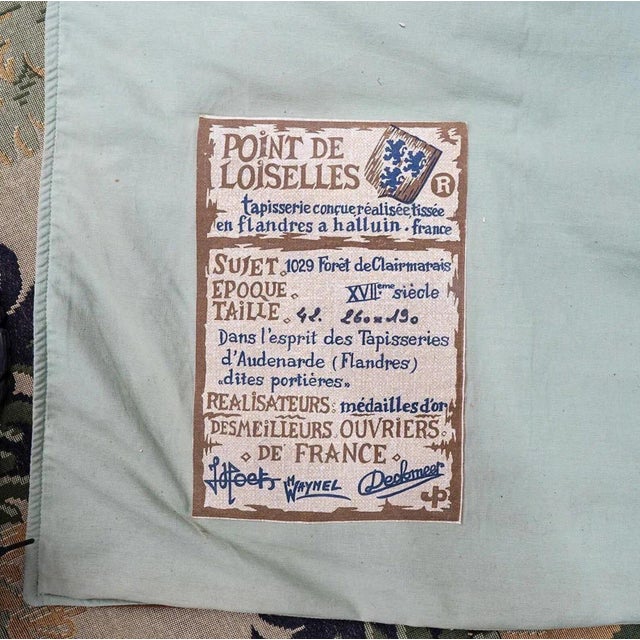 POINT DE
LOISELLES
R
tapisserie conçue, réalisée, tissée
en flandres a halluin. france
SUJET. 1029 Forêt de Clairmarais
EPOQUE. XVIIeme siècle
TAILLE. 42. 260 x 190
Dans l'esprit des Tapisseries
d'Audenarde (Flandres)
"dîtes portières"
REALISATEURS: médailles d'or
DES MEILLEURS OUVRIERS
DE FRANCE
WAYNEL
JP